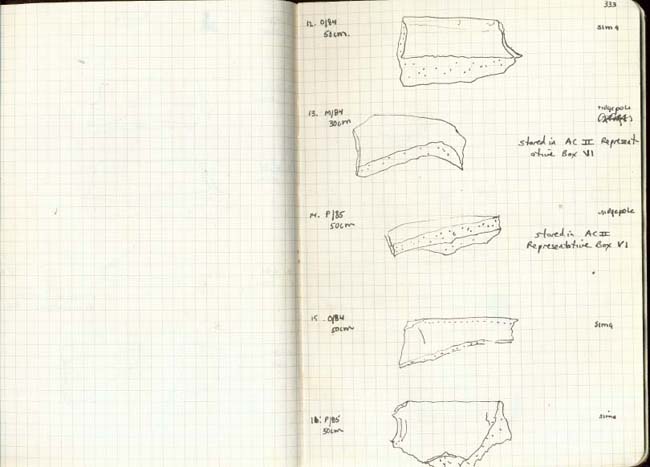 333
12. O/84
50cm.
sima
13. M/84
30cm
ridgepole
stored in AC II Represent
ative Box VI
14. P/85
50cm
ridgepole
stored in AC II
Representative Box VI
15. O/84
50cm
sima
16. P/85
30cm
sima